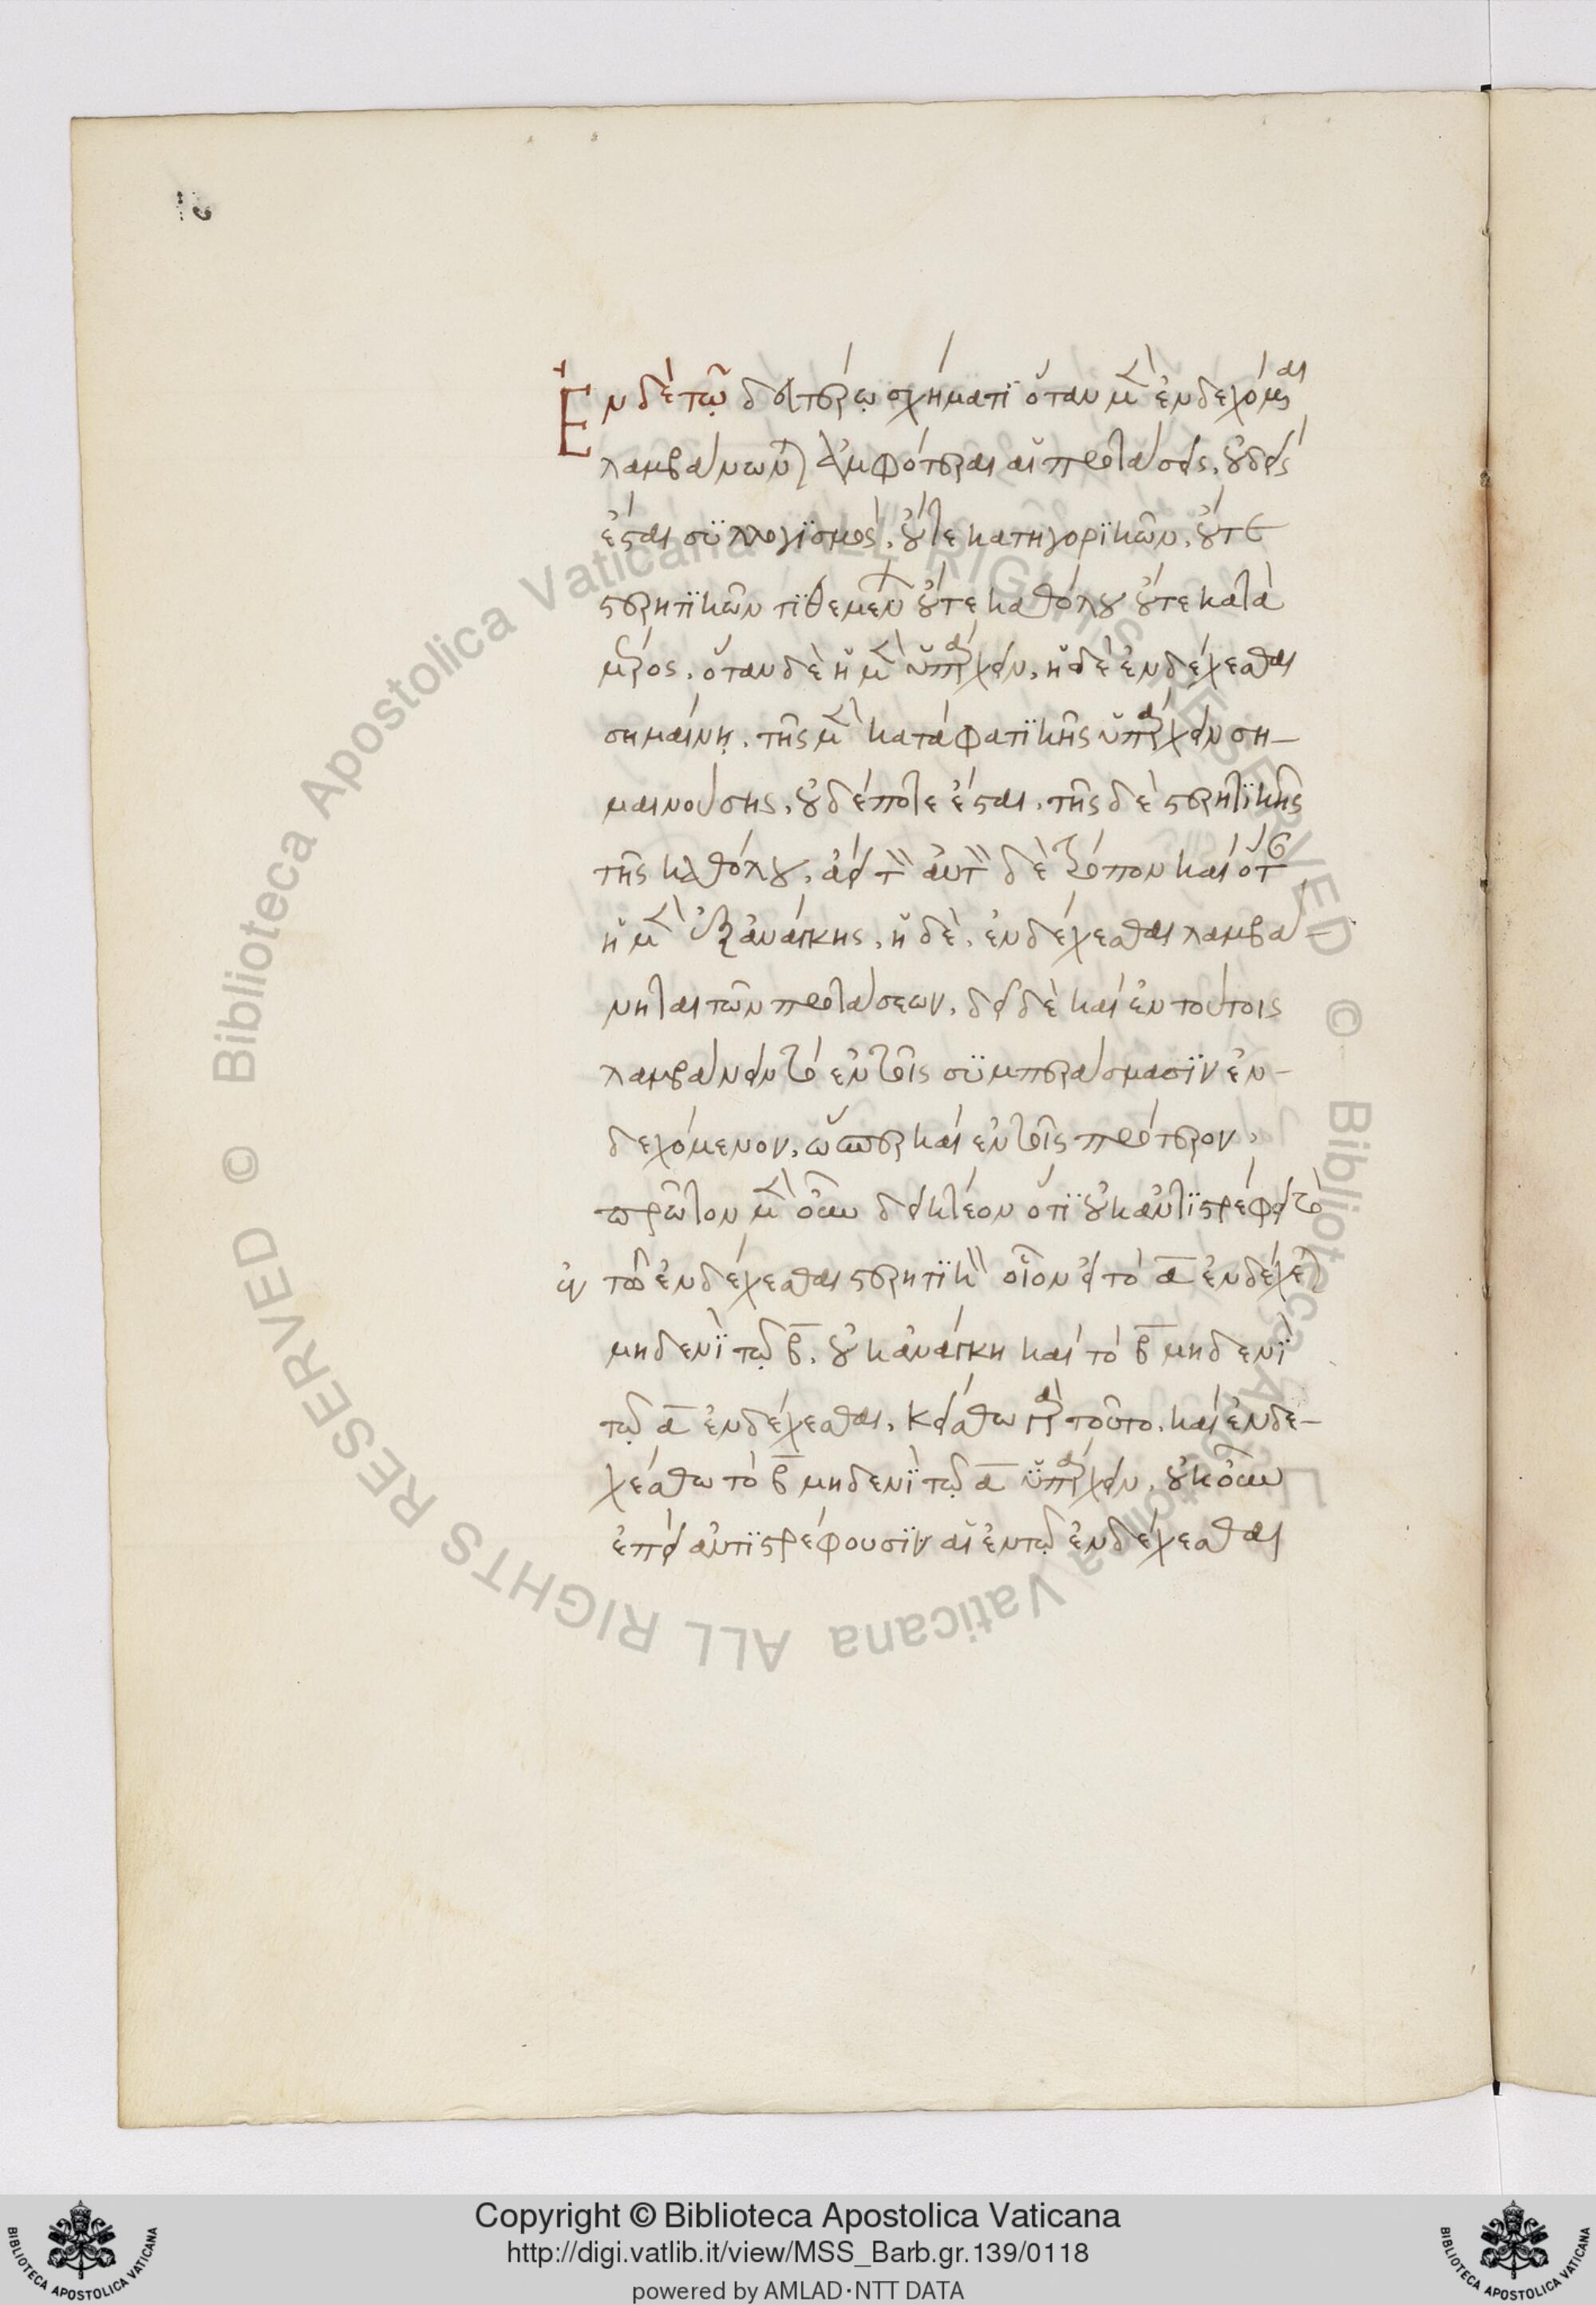 Ἐν δὲ τῷ δευτέρῳ σχήματι ὅταν μὲν ἐνδεχόμεναι
λαμβάνωνται ἀμφότεραι αἱ προτάσεις, οὐδεὶς
ἔσται συλλογισμός, οὔτε κατηγορικῶν, οὔτε
στερητικῶν τιθεμένων οὔτε καθόλου οὔτε κατὰ
μέρος. ὅταν δὲ ἡ μὲν ὑπάρχειν, ἡ δὲ ἐνδέχεσθαι
σημαίνῃ. τῆς μὲν καταφατικῆς ὑπάρχειν ση-
μαινούσης, οὐδέποτε ἔσται. τῆς δὲ στερητικῆς
τῆς καθόλου, ἀεί τὸν αὐτὸν δὲ τρόπον καὶ ὅτε
ἡ μὲν ἐξ ἀνάγκης, ἡ δὲ, ἐνδέχεσθαι λαμβά-
νηται τῶν προτάσεων, δεῖ δὲ καὶ ἐν τούτοις
λαμβάνειν τὸ ἐν τοῖς συμπεράσμασιν ἐν-
δεχόμενον, ὥσπερ καὶ ἐν τοῖς πρότερον,
πρῶτον μὲν οὖν δεικτέον ὅτι οὐκ ἀντιστρέφει τὸ
ἐν τῶ ἐνδέχεσθαι στερητικὸν οἷον εἰ τὸ α ἐνδέχεται
μηδενὶ τῷ β, οὐκ ἀνάγκη καὶ τὸ β μηδενὶ
τῷ α ἐνδέχεσθαι. κείσθω γὰρ τοῦτο, καὶ ἐνδε-
χέσθω τὸ β μηδενὶ τῷ α ὑπάρχειν. οὐκοῦν
ἐπεὶ ἀντιστρέφουσιν αἱ ἐν τῷ ἐνδέχεσθαι
Copyright © Biblioteca Apostolica Vaticana
http://digi.vatlib.it/view/MSS_Barb.gr.139/0118
powered by AMLAD·NTT DATA